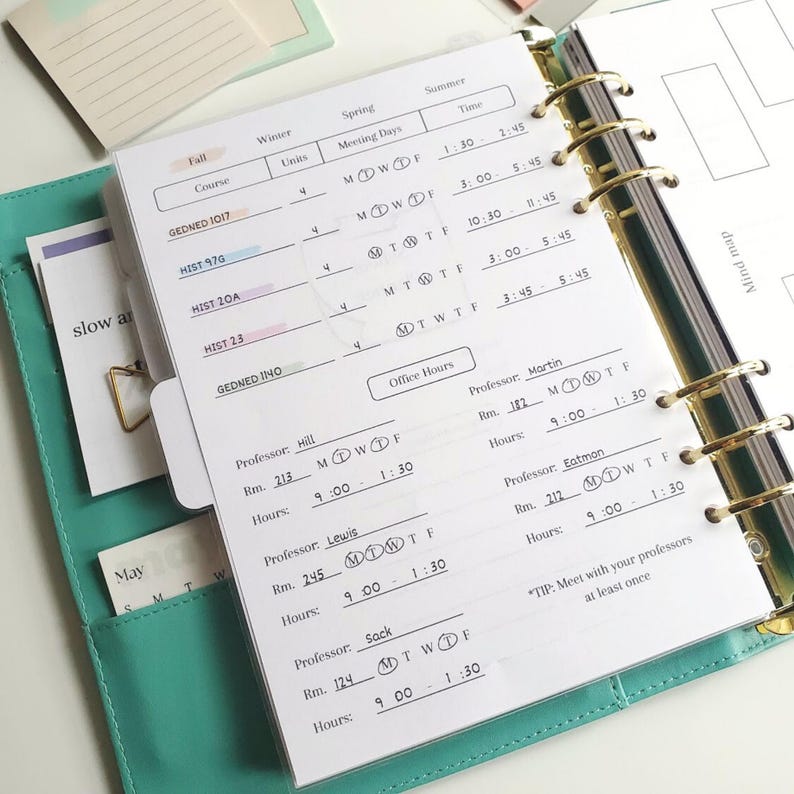 Fall Winter Spring Summer
Course Units Meeting Days Time
GEDNED 1017 4 M T W T F 1:30 - 2:45
HIST 97G 4 M T W T F 3:00 - 5:45
HIST 20A 4 M T W T F 10:30 - 11:45
HIST 23 4 M T W T F 3:00 - 5:45
GEDNED 1140 4 M T W T F 3:45 - 5:45
Office Hours
Professor: Hill
Rm. 213 M T W T F
Hours: 9:00 - 1:30
Professor: Martin
Rm. 182 M T W T F
Hours: 9:00 - 1:30
Professor: Lewis
Rm. 245 M T W T F
Hours: 9:00 - 1:30
Professor: Eatmon
Rm. 212 M T W T F
Hours: 9:00 - 1:30
Professor: Sack
Rm. 124 M T W T F
Hours: 9 00 - 1:30
*TIP: Meet with your professors
at least once
slow
May
S M T W
Mind map